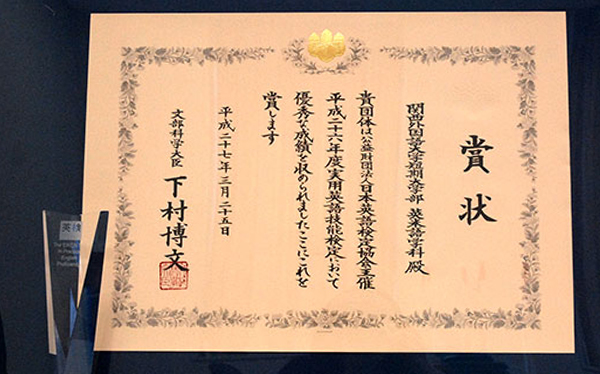 賞状
関西外国語大学短期大学部 英米語学科 殿
貴団体は公益財団法人日本英語検定協会主催
平成二十六年度実用英語技能検定において
優秀な成績を収められましたここにこれを
賞します
平成二十七年三月二十五日
文部科学大臣 下村博文
英検